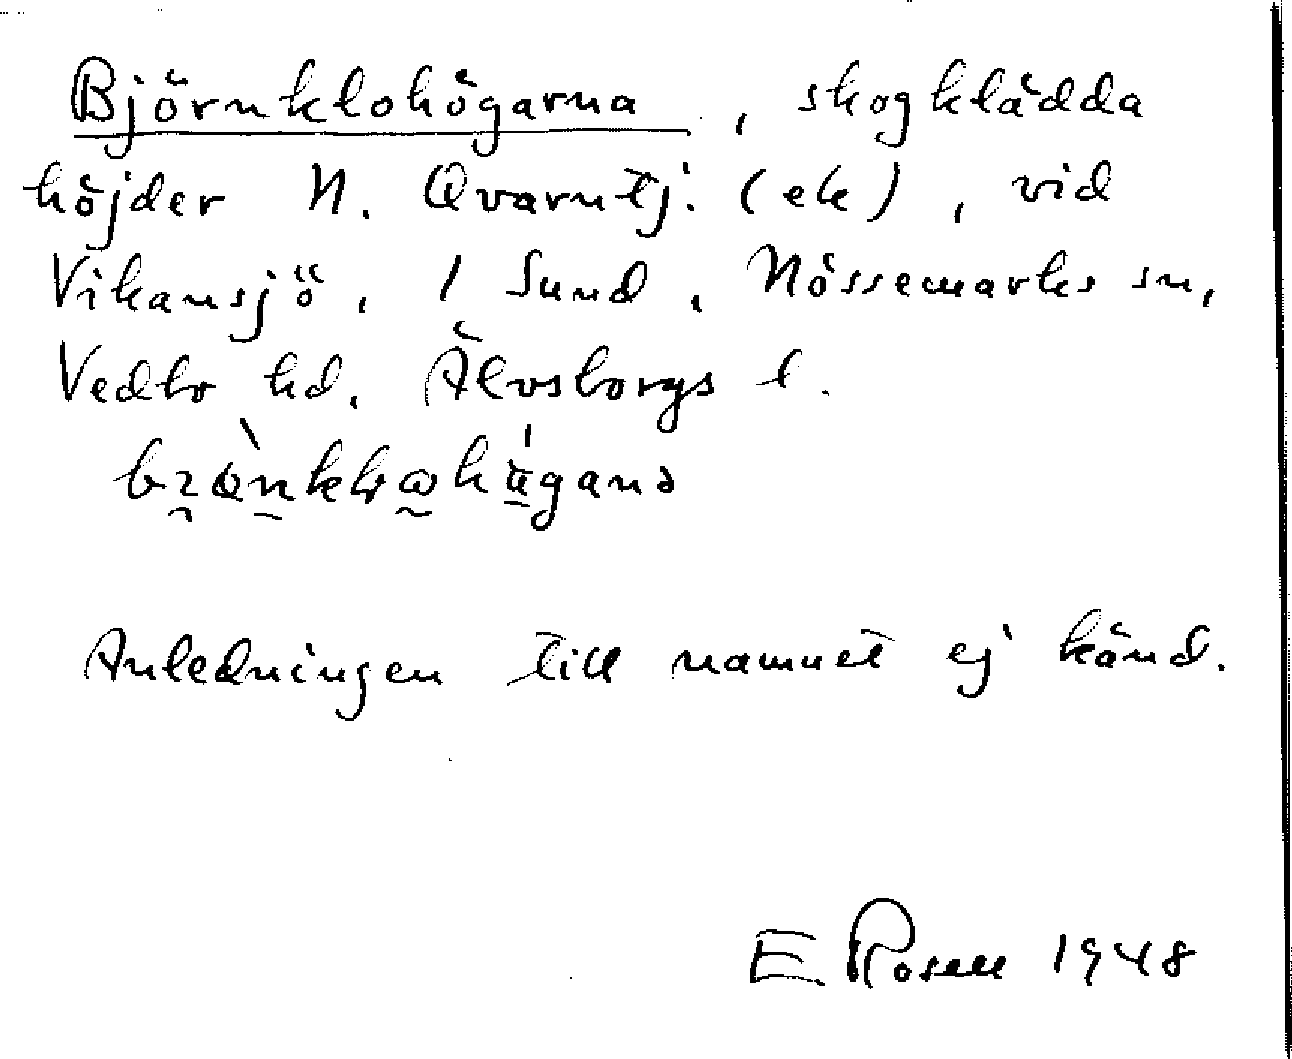 Björnklohögarna, skogklädda
höjder N. Qvarntj. (ek), vid
Vikansjö, 1 Sund, Nössemarks sn,
Vedbo hd, Älvsborgs l.
Anledningen till namnet ej känd.
E. Rosell 1948